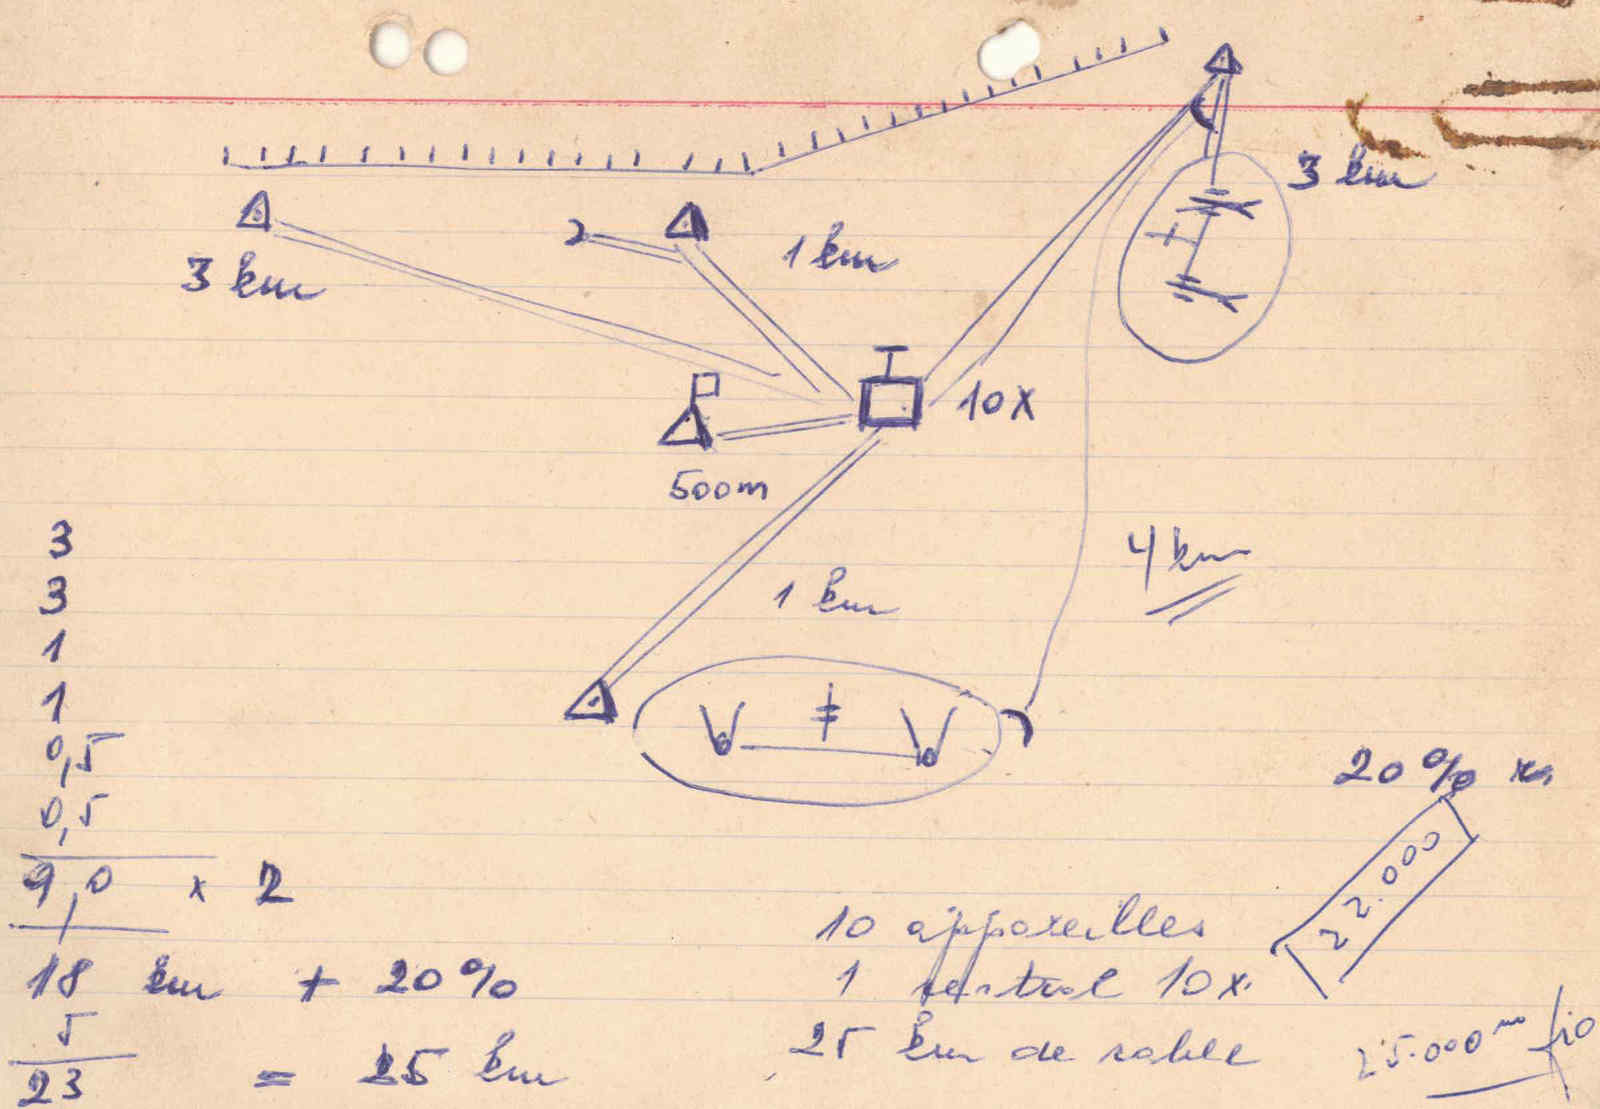 3 km
2
1 km
3 km
10x
500m
4 km
1 km
3
3
1
1
0,5
0,5
9,0 x 2
18 km + 20%
5
23 = 25 km
20%
22.000
10 appareilles
1 sentral 10x
25 km de cable
25.000 m fio